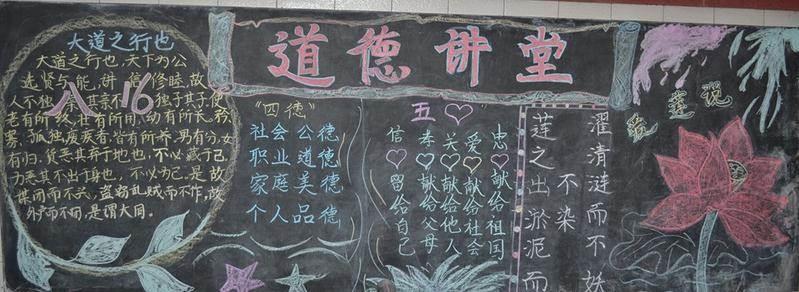 大道之行也
大道之行也,天下为公
选贤与能,讲信修睦,故
人不独其亲,独子其子使
老有所终,壮有所用,幼有所长,矜
寡,孤独,废疾者,皆有所养,男有分,女
有归,货恶其弃于地也,不必藏于己,
力恶其不出于身也,不必为己,是故
谋闭而不兴,盗窃乱贼而不作,故
外户而不闭,是谓大同。
八 16
道德讲堂
"四德"
社会公德
职业道德
家庭美德
个人品德
五♡
忠♡献给祖国
爱♡献给社会
关♡献给他人
孝♡献给父母
信♡留给自己
莲之出淤泥而
不染
濯清涟而不妖
爱莲说